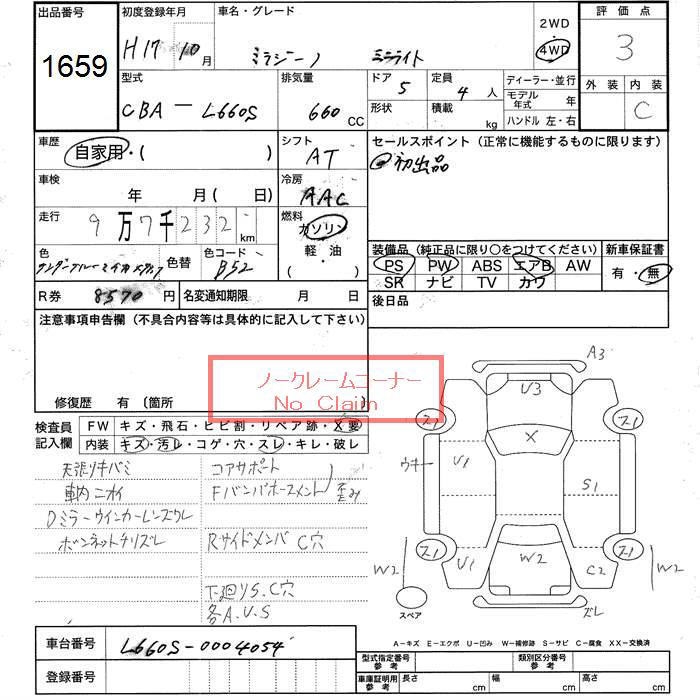 出品番号
1659
初度登録年月
H17 10月
車名・グレード
ミラジーノ ミニライト
2WD
4WD
評価点
3
外装 内装
C
型式
CBA－L660S
排気量
660 CC
ドア 5
形状
定員 4 人
積載 kg
ディーラー・並行
モデル年式 年
ハンドル 左・右
車歴
自家用・( )
シフト
AT
セールスポイント(正常に機能するものに限ります)
初出品
車検
年 月 ( 日)
冷房
AAC
走行
9万7千232 km
燃料
ガソリン
軽油
・( )
色
色替
色コード
B52
装備品(純正品に限り○をつけてください)
PS PW ABS エアB AW
SR ナビ TV カワ
新車保証書
有・無
R券 8570円
名変通知期限 月 日
後日品
注意事項申告欄(不具合内容等は具体的に記入して下さい)
修復歴 有 (箇所
ノークレームコーナー
No Claim
検査員記入欄
FW キズ・飛石・ヒビ割・リペア跡・X要
内装 キズ・汚レ・コゲ・穴・スレ・キレ・破レ
天張りキバミ
車内ニオイ
Dミラーウインカーレンズワレ
ボンネットチリズレ
コアサポート
Fバンパホースメント
歪み
RサイドメンバC穴
下廻りS.C穴
各A.U.S
A3
U3
ス1 ス1
X
ウキ U1 S1
ス1 ス1
W2 U1 W2 C2 W2
スペア
ズレ
A－キズ E－エクボ U－凹み W－補修跡 S－サビ C－腐食 XX－交換済
車台番号
L660S-0004054
登録番号
型式指定番号 参考
類別区分番号 参考
車庫証明用 参考
長さ cm
幅 cm
高さ cm